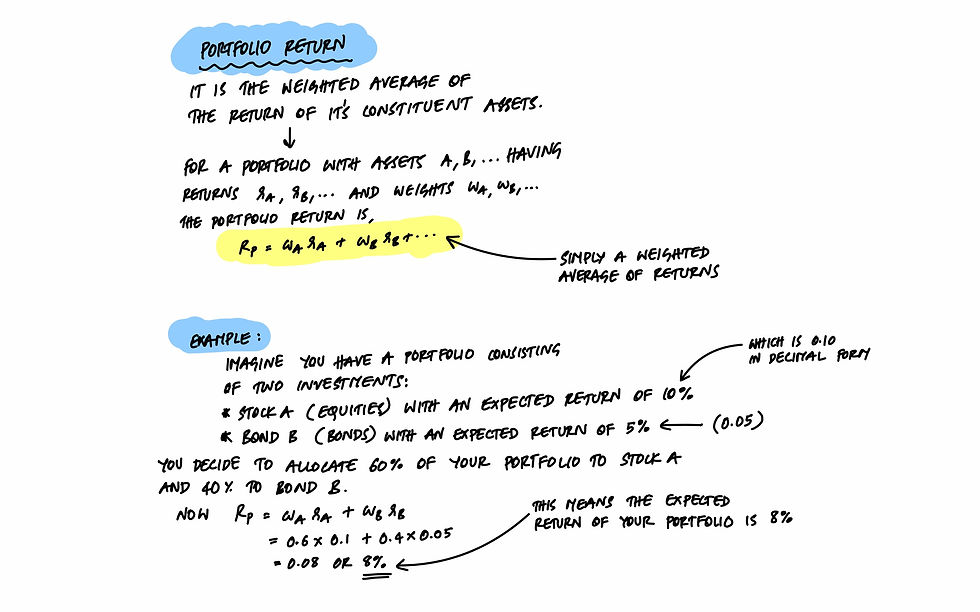 PORTFOLIO RETURN
IT IS THE WEIGHTED AVERAGE OF
THE RETURN OF IT'S CONSTITUENT ASSETS.
FOR A PORTFOLIO WITH ASSETS A, B, ... HAVING
RETURNS rA, rB, ... AND WEIGHTS WA, WB, ...
THE PORTFOLIO RETURN IS,
RP = WA rA + WB rB + ...
SIMPLY A WEIGHTED
AVERAGE OF RETURNS
EXAMPLE:
IMAGINE YOU HAVE A PORTFOLIO CONSISTING
OF TWO INVESTMENTS:
* STOCK A (EQUITIES) WITH AN EXPECTED RETURN OF 10%
WHICH IS 0.10
IN DECIMAL FORM
* BOND B (BONDS) WITH AN EXPECTED RETURN OF 5% (0.05)
YOU DECIDE TO ALLOCATE 60% OF YOUR PORTFOLIO TO STOCK A
AND 40% TO BOND B.
NOW RP = WA rA + WB rB
= 0.6 × 0.1 + 0.4 × 0.05
= 0.08 OR 8%
THIS MEANS THE EXPECTED
RETURN OF YOUR PORTFOLIO IS 8%